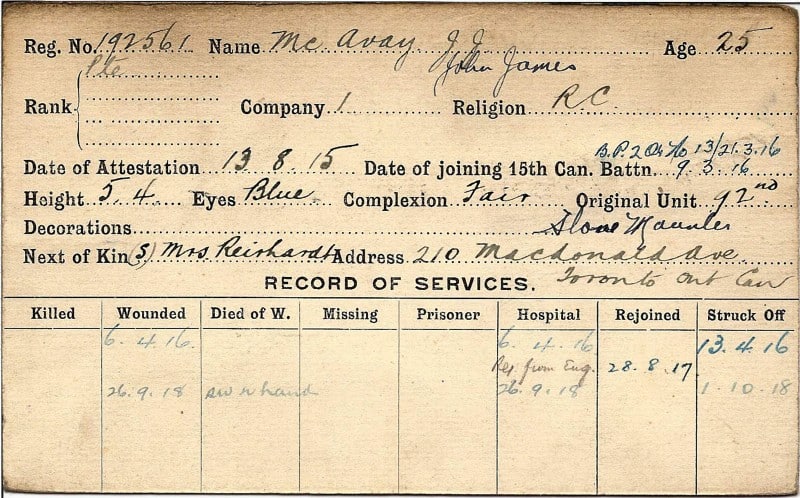 Reg. No. 192561 Name Mc Avay J. J. Age 25
John James
Pte
Rank Company 1 Religion R.C.
B.P. 2 Or No 13/21.3.16
Date of Attestation 13 8 15 Date of joining 15th Can. Battn. 9.3.16
Height 5.4 Eyes Blue Complexion Fair Original Unit 92nd
Decorations Stove Mounter
Next of Kin (S) Mrs. Reirhardt Address 210 Macdonald Ave.
RECORD OF SERVICES. Toronto Ont Can
Killed Wounded Died of W. Missing Prisoner Hospital Rejoined Struck Off
6.4.16. 6.4.16 13.4.16
Rej. from Eng. 28.8.17.
26.9.18 sw r hand 26.9.18 1.10.18